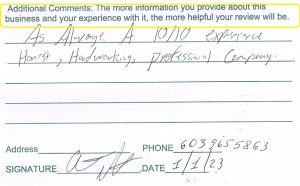 Additional Comments: The more information you provide about this
business and your experience with it, the more helpful your review will be.
As Always. A 10/10 experience
Honest, Hardworking, professional Company.
Address
PHONE 6039655863
SIGNATURE DATE 1/1/23